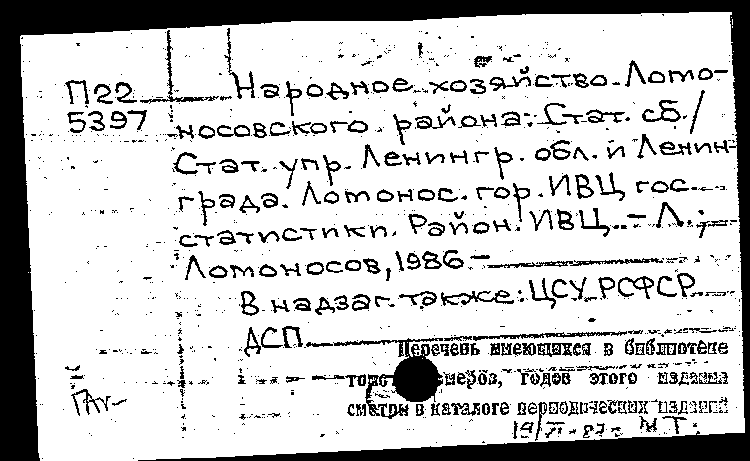 П22 Народное хозяйство Ломо-
5397 носовского района: Стат. сб./
Стат. упр. Ленингр. обл. и Ленин-
града. Ломонос. гор. ИВЦ гос.
статистики. Район. ИВЦ. – Л.;
Ломоносов, 1986 –
В надзаг. также: ЦСУ РСФСР.
ДСП
Перечень имеющихся в библиотеке
номеров, годов этого издания
смотри в каталоге периодических изданий
М.Т.